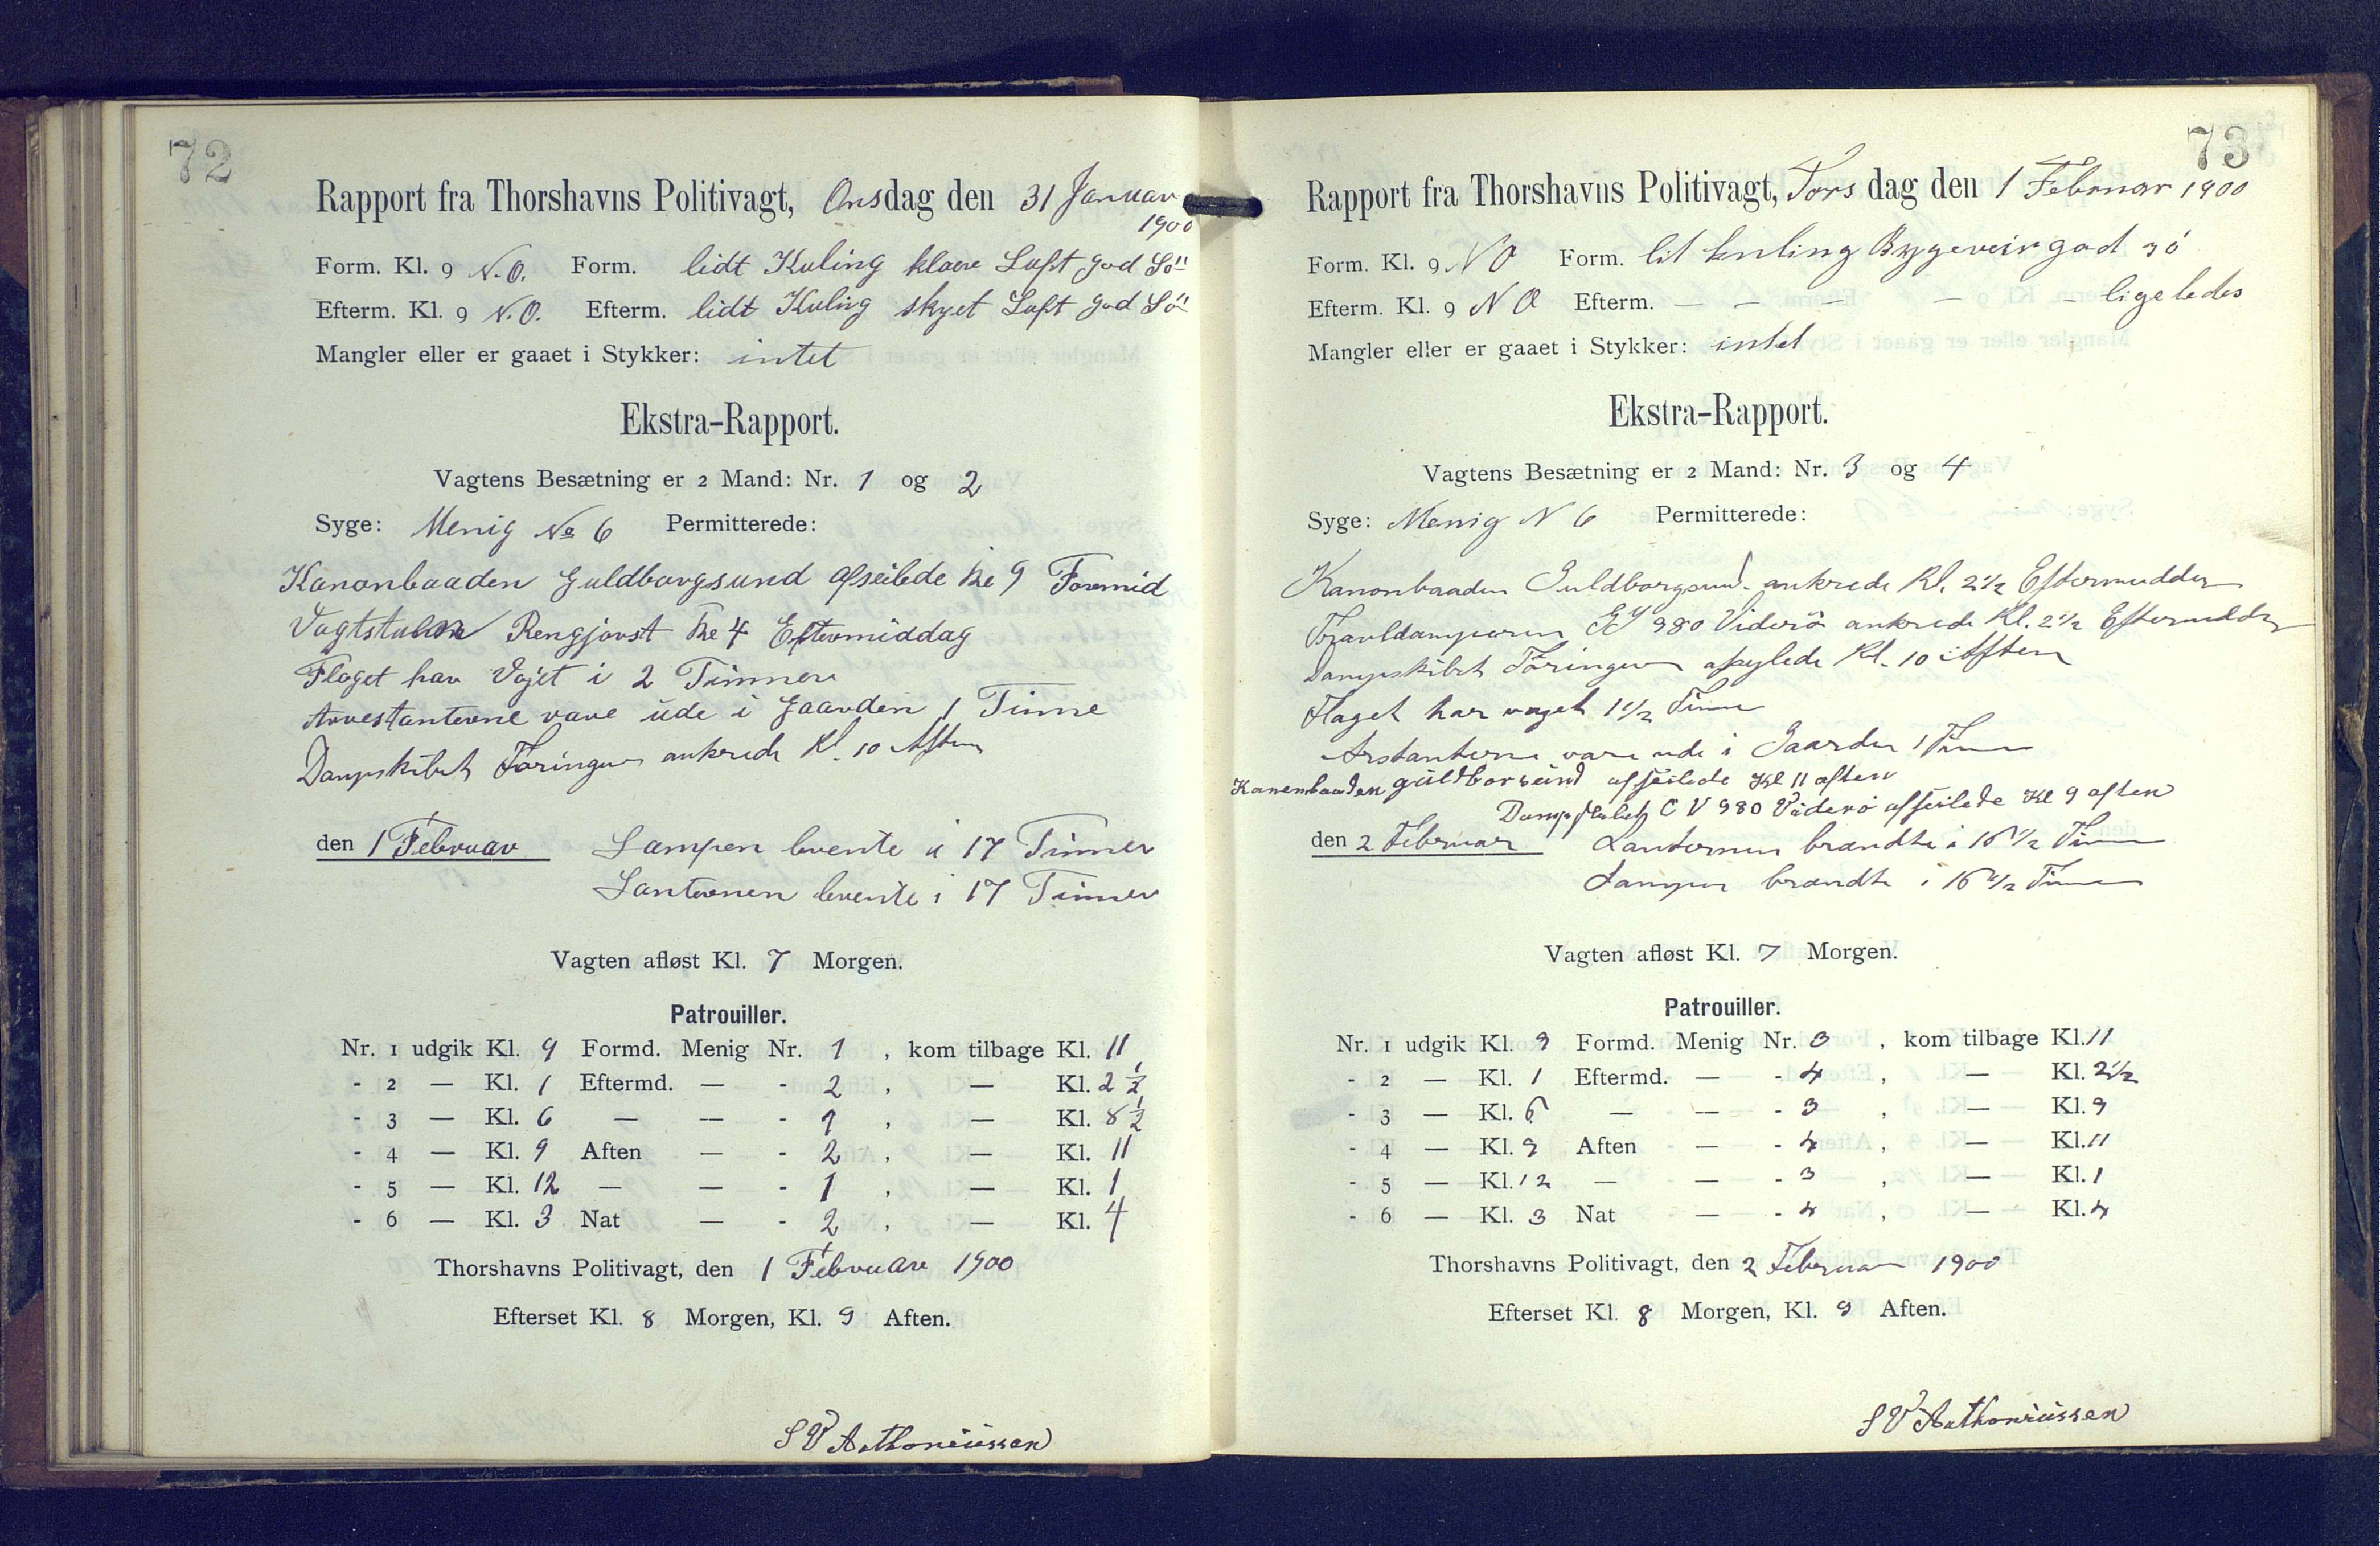 72
Rapport fra Thorshavns Politivagt, Onsdag den 31 Januar
1900
Form. Kl. 9 N.O. Form. lidt Kuling klare Luft god Sö
Efterm. Kl. 9 N.O. Efterm. lidt Kuling skyet Luft god Sö
Mangler eller er gaaet i Stykker: intet
Ekstra-Rapport.
Vagtens Besætning er 2 Mand: Nr. 1 og 2
Syge: Menig No 6 Permitterede:
Kanonbaaden Guldborgsund afseilede Kl 9 Formid
Vagtstuen Rengjorst Kl 4 Eftermiddag
Flaget har Vajet i 2 Timmer
Arrestanterne vare ude i Gaarden 1 Time
Dampskibet Föringen ankrede Kl. 10 Aften
den 1 Februar Lampen brente i 17 Timer
Lanternen brente i 17 Timer
Vagten afløst Kl. 7 Morgen.
Patrouiller.
Nr. 1 udgik Kl. 9 Formd. Menig Nr. 1 , kom tilbage Kl. 11
- 2 — Kl. 1 Eftermd. — - 2 , — Kl. 2 1/2
- 3 — Kl. 6 — — - 1 , — Kl. 8 1/2
- 4 — Kl. 9 Aften — - 2 , — Kl. 11
- 5 — Kl. 12 — — - 1 , — Kl. 1
- 6 — Kl. 3 Nat — - 2 , — Kl. 4
Thorshavns Politivagt, den 1 Februar 1900
Efterset Kl. 8 Morgen, Kl. 9 Aften.
S V Anthoniussen
73
Rapport fra Thorshavns Politivagt, Tors dag den 1 Februar 1900
Form. Kl. 9 NO Form. lit kuling Bygeveir god sö
Efterm. Kl. 9 NO Efterm. — — — — - ligeledes
Mangler eller er gaaet i Stykker: intet
Ekstra-Rapport.
Vagtens Besætning er 2 Mand: Nr. 3 og 4
Syge: Menig N 6 Permitterede:
Kanonbaaden Guldborgsund ankrede Kl. 2 1/2 Eftermidder
Travldamperen 980 Viderö ankrede Kl. 2 1/2 Eftermidder
Dampskibet Föringen afsejlede Kl. 10 Aften
Flaget har vajet 1 1/2 Time
Arstanterne vare ude i Gaarden 1 Time
Kanenbaaden guldborsund afseilede Kl 11 aften
C V 980 Viderö afseilede Kl 9 aften
den 2 Februar Lanternen brændte i 16 1/2 Time
Lampen brændte i 16 1/2 Time
Vagten afløst Kl. 7 Morgen.
Patrouiller.
Nr. 1 udgik Kl. 9 Formd. Menig Nr. 3 , kom tilbage Kl. 11
- 2 — Kl. 1 Eftermd. — - 4 , — Kl. 2 1/2
- 3 — Kl. 6 — — - 3 , — Kl. 9
- 4 — Kl. 9 Aften — - 4 , — Kl. 11
- 5 — Kl. 12 — — - 3 , — Kl. 1
- 6 — Kl. 3 Nat — - 4 , — Kl. 4
Thorshavns Politivagt, den 2 Februar 1900
Efterset Kl. 8 Morgen, Kl. 9 Aften.
S V Anthoniussen